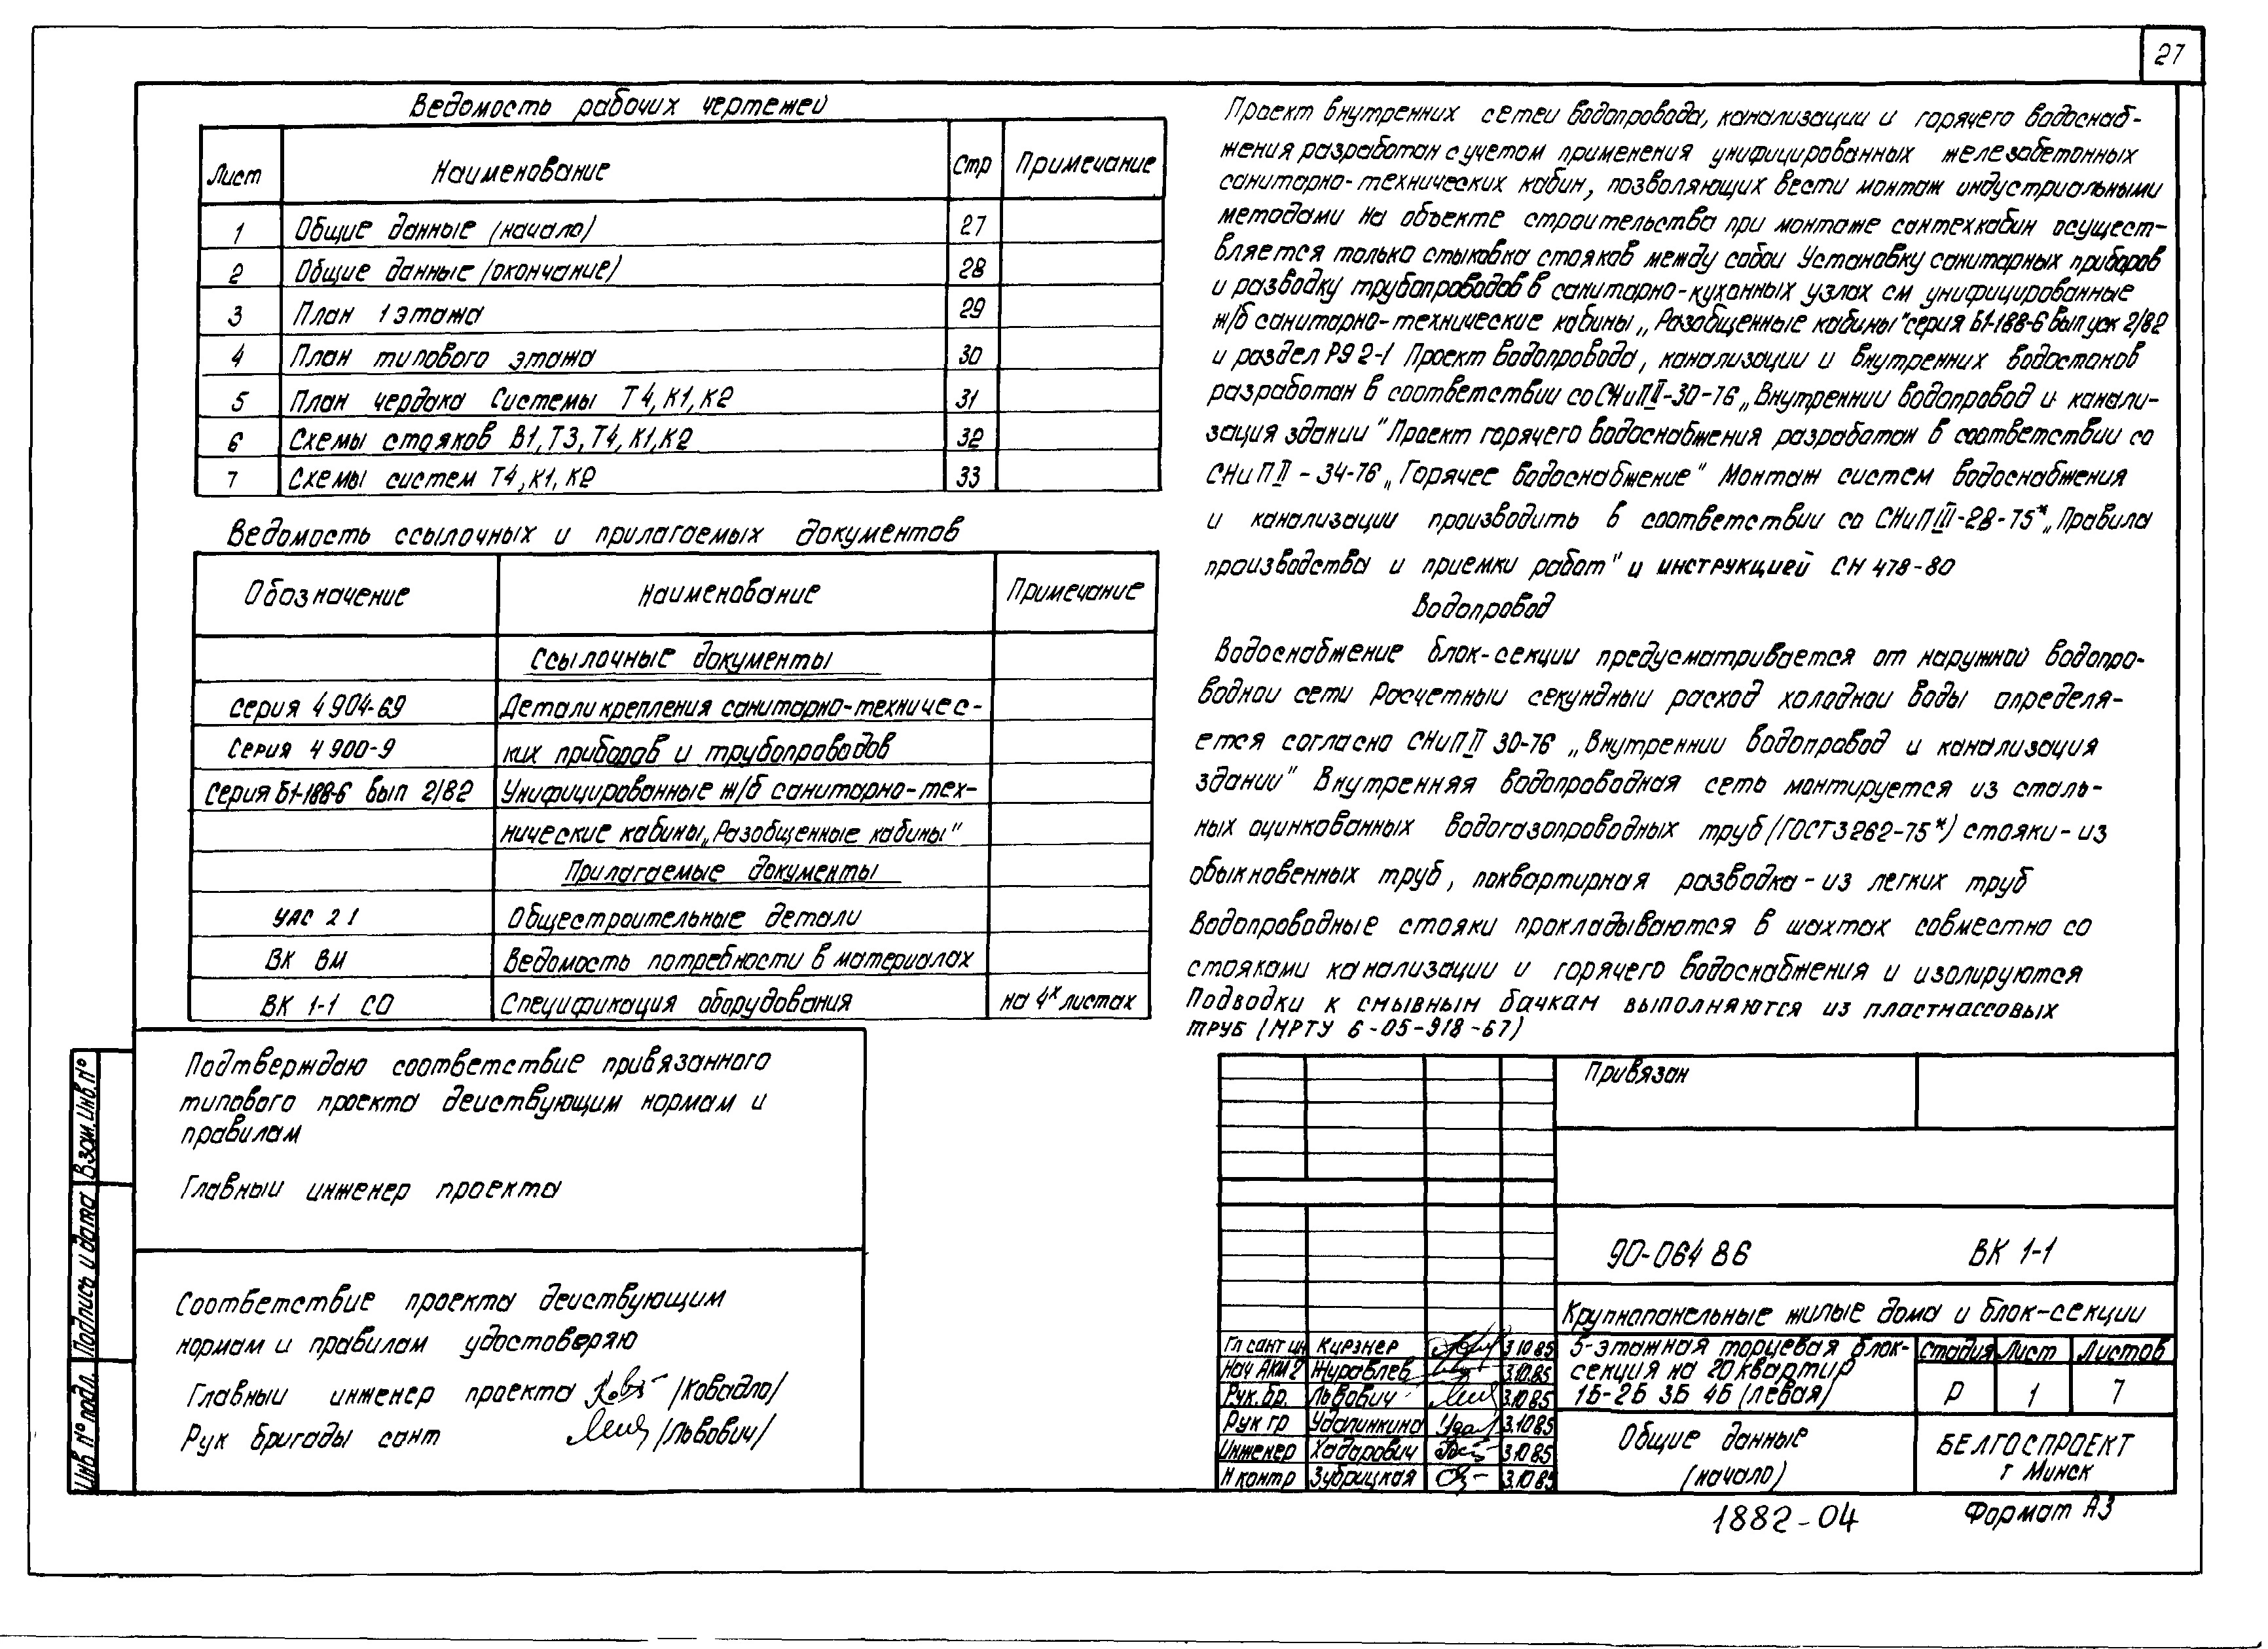 27
Ведомость рабочих чертежей
Лист Наименование Стр Примечание
1 Общие данные (начало) 27
2 Общие данные (окончание) 28
3 План 1 этажа 29
4 План типового этажа 30
5 План чердака Системы Т4, К1, К2 31
6 Схемы стояков В1, Т3, Т4, К1, К2 32
7 Схемы систем Т4, К1, К2 33
Ведомость ссылочных и прилагаемых документов
Обозначение Наименование Примечание
Ссылочные документы
Серия 4 904-69 Детали крепления санитарно-техничес-
Серия 4 900-9 ких приборов и трубопроводов
Серия Б1-188-6 вып 2/82 Унифицированные ж/б санитарно-тех-
нические кабины „Разобщенные кабины"
Прилагаемые документы
УАС 2 1 Общестроительные детали
ВК ВМ Ведомость потребности в материалах
ВК 1-1 СО Спецификация оборудования на 4х листах
Подтверждаю соответствие привязанного
типового проекта действующим нормам и
правилам
Главный инженер проекта
Соответствие проекта действующим
нормам и правилам удостоверяю
Главный инженер проекта /Ковадло/
Рук бригады сант /Львович/
Взам. Инв. №
Подпись и дата
Инв. № подл.
Проект внутренних сетей водопровода, канализации и горячего водоснаб-
жения разработан с учетом применения унифицированных железобетонных
санитарно-технических кабин, позволяющих вести монтаж индустриальными
методами На объекте строительства при монтаже сантехкабин осущест-
вляется только стыковка стояков между собой Установку санитарных приборов
и разводку трубопроводов в санитарно-кухонных узлах см унифицированные
ж/б санитарно-технические кабины „Разобщенные кабины" серия Б1-188-6 выпуск 2/82
и раздел Р9 2-1 Проект водопровода, канализации и внутренних водостоков
разработан в соответствии со СНиП II-30-76 „Внутренний водопровод и канали-
зация зданий" Проект горячего водоснабжения разработан в соответствии со
СНиП II-34-76 „Горячее водоснабжение" Монтаж систем водоснабжения
и канализации производить в соответствии со СНиП III-28-75* „Правила
производства и приемки работ" и инструкцией СН 478-80
Водопровод
Водоснабжение блок-секции предусматривается от наружной водопро-
водной сети Расчетный секундный расход холодной воды определя-
ется согласно СНиП II 30-76 „Внутренний водопровод и канализация
зданий" Внутренняя водопроводная сеть монтируется из сталь-
ных оцинкованных водогазопроводных труб (ГОСТ 3262-75*) стояки - из
обыкновенных труб, поквартирная разводка - из легких труб
Водопроводные стояки прокладываются в шахтах совместно со
стояками канализации и горячего водоснабжения и изолируются
Подводки к смывным бачкам выполняются из пластмассовых
труб (МРТУ 6-05-918-67)
Привязан
90-064 86 ВК 1-1
Крупнопанельные жилые дома и блок-секции
Гл сант ин Кирзнер 3.10 85
Нач АКМ 2 Журавлев 3.10.85
Рук. бр. Львович 3.10.85
Рук гр Удалинкина 3.10 85
Инженер Хадарович 3.10 85
Н контр Зубрицкая 3.10 85
5-этажная торцевая блок-
секция на 20 квартир
1Б-2Б 3Б 4Б (левая)
Стадия Лист Листов
Р 1 7
Общие данные
(начало)
БЕЛГОСПРОЕКТ
г Минск
1882-04
Формат А3